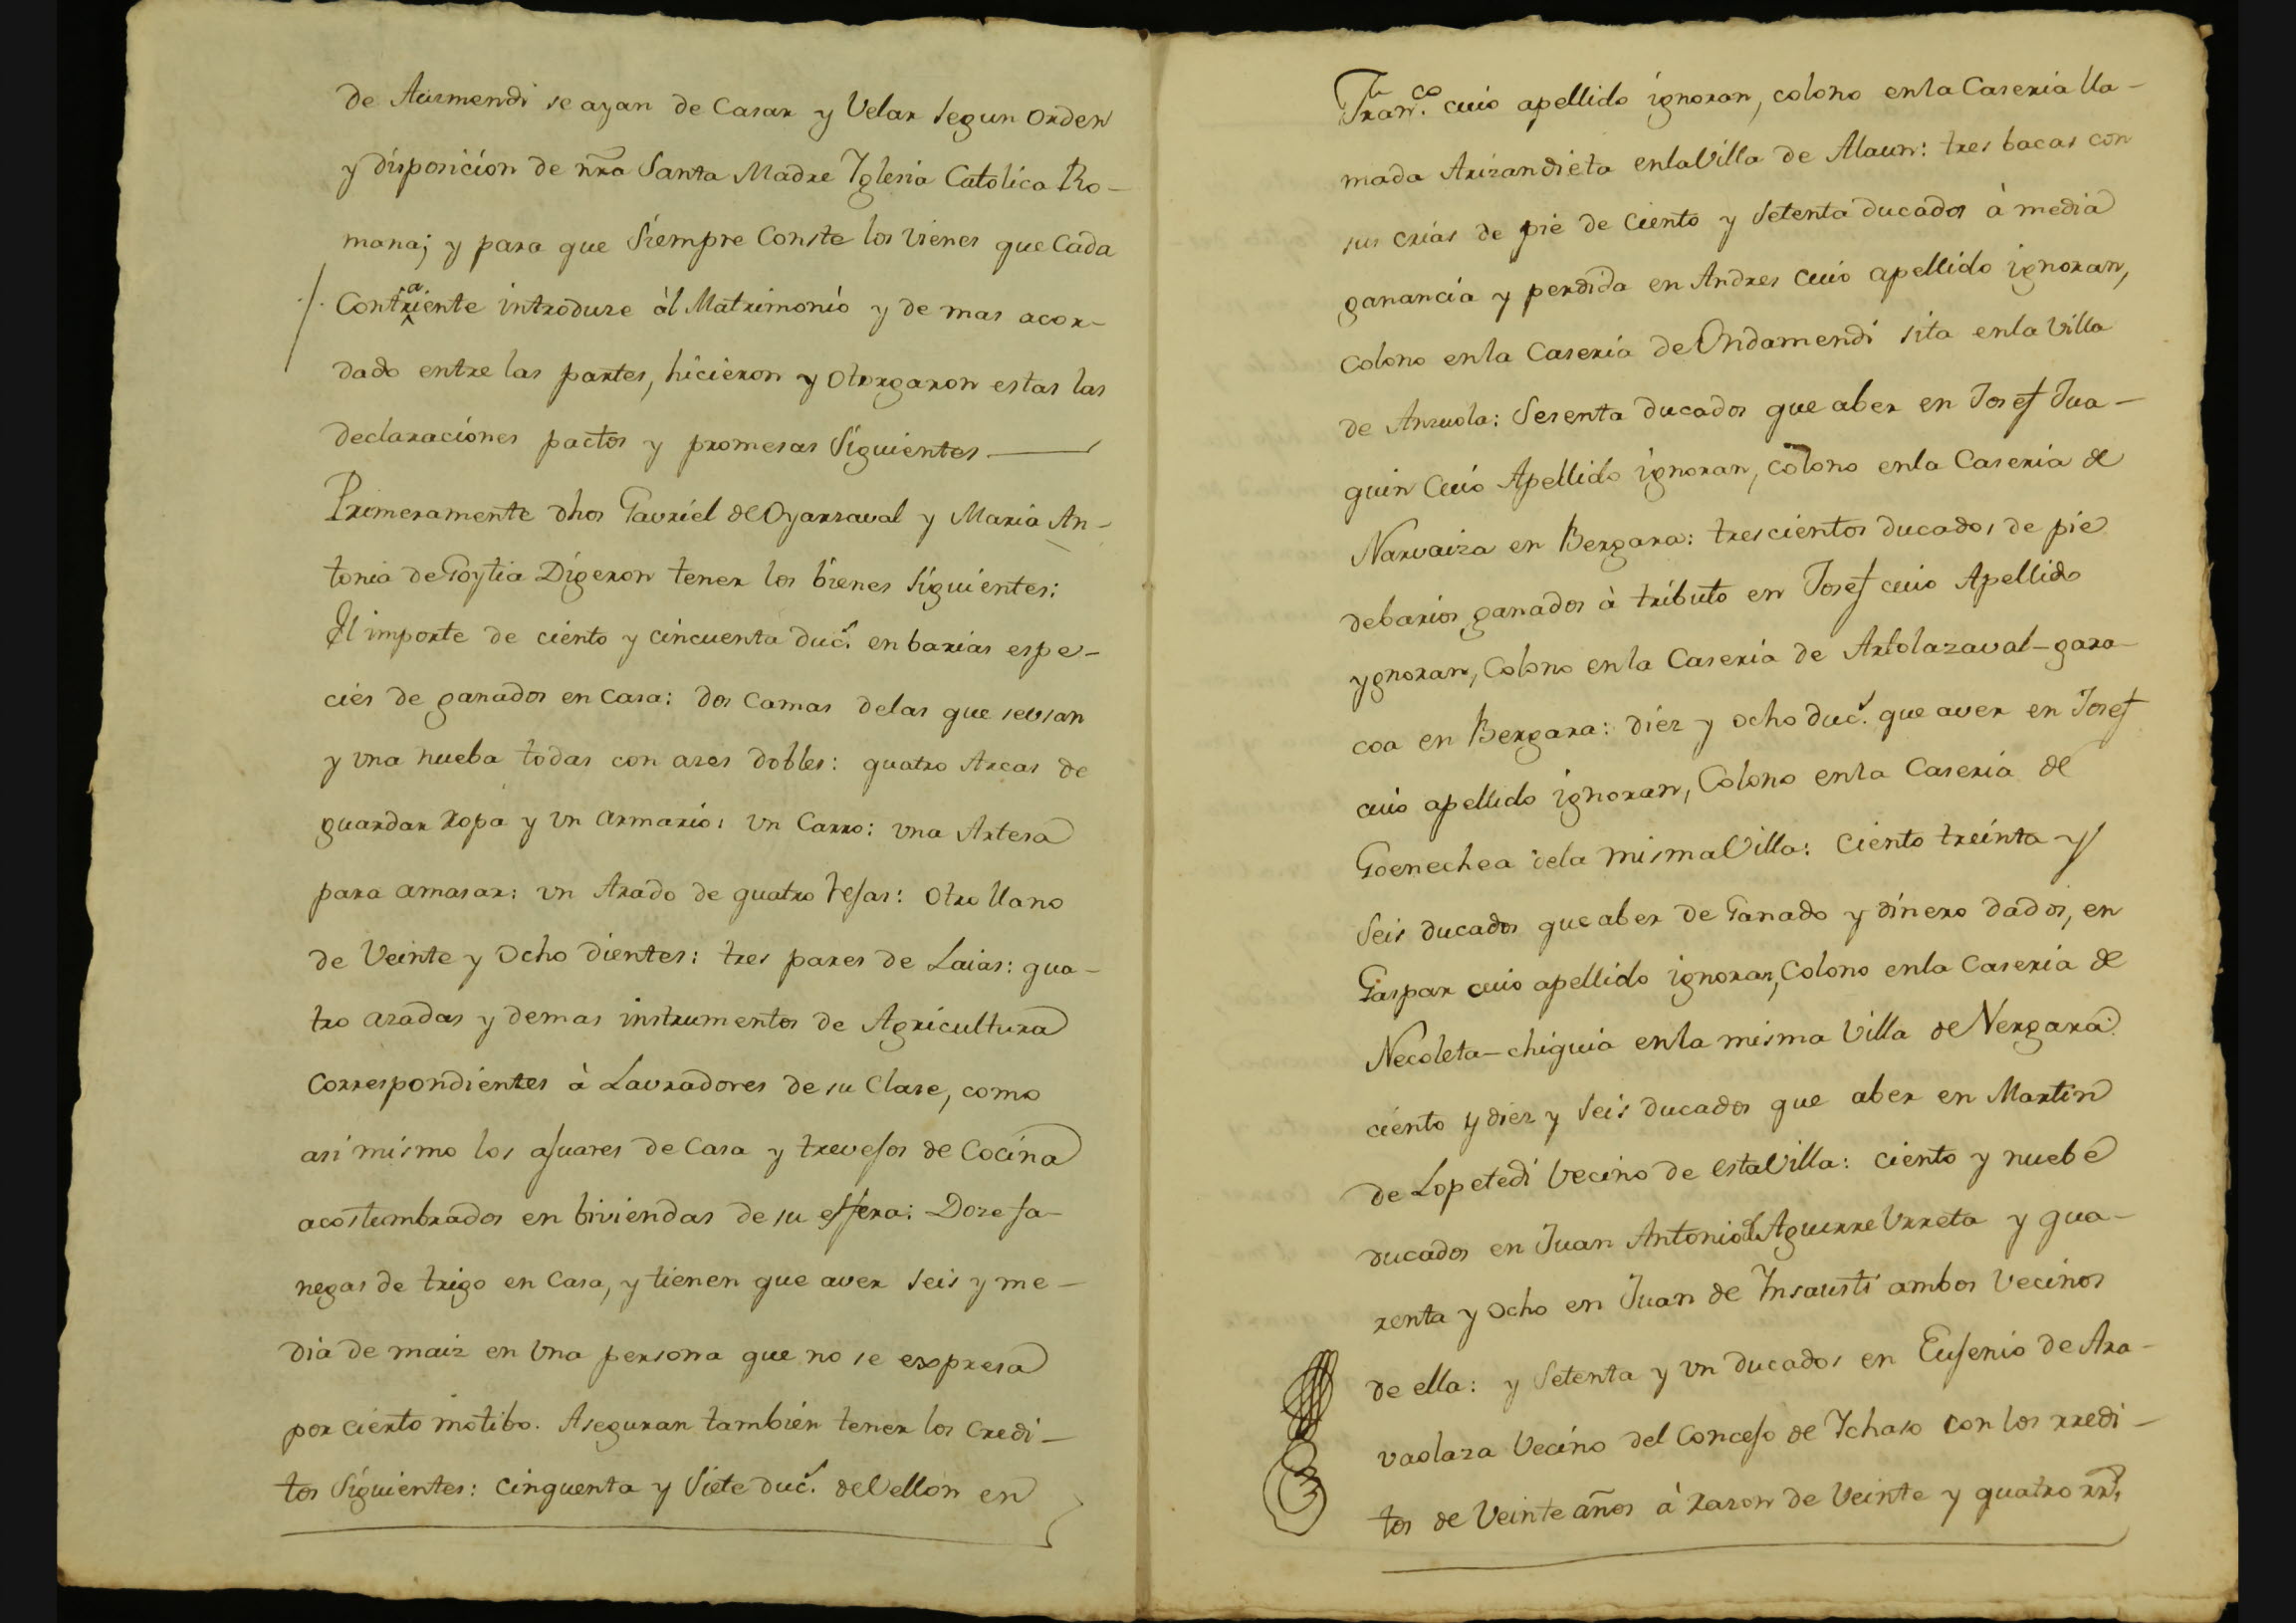 de Ausmendi se ayan de Casar y Velar segun orden
y disposicion de nrã Santa Madre Yglesia Catolica Ro-
mana; y para que siempre Conste los vienes que Cada
Contraiente introduze ál Matrimonio y de mas acor-
dado entre las partes, hicieron y otorgaron estas las
declaraciones pactos y promesas siguientes
Primeramente dhos Gavriel de Oyarzaval y Maria An-
tonia de Goytia Digeron tener los bienes siguientes:
El importe de ciento y cincuenta duc.s en barias espe-
cies de ganados en casa: dos camas delas que se usan
y una nueba todas con azes dobles: quatro Arcas de
guardar ropa y un armario: un Carro: una Artesa
para amasar: un Arado de quatro resas: otro llano
de Veinte y ocho dientes: tres pares de Laias: qua-
tro azadas y demas instrumentos de Agricultura
Correspondientes à Lavradores de su Clase, como
asi mismo los ajuares de Casa y trevejos de Cocina
acostumbrados en biviendas de su essfera: Doze fa-
negas de trigo en Casa, y tienen que aver seis y me-
dia de maiz en una persona que no se expresa
por cierto motibo. Aseguran tambien tener los Credi-
tos siguientes: cinquenta y siete duc.s de Vellon en
Fran.co cuio apellido ignoran, colono enla Caseria lla-
mada Arizandieta enla Villa de Ataun: tres bacas con
sus crias de pie de Ciento y Setenta ducados à media
ganancia y perdida en Andres Cuio apellido ignoran,
Colono enla Caseria de Ondamendi sita enla Villa
de Anzuola: Sesenta ducados que aber en Josef Jua-
quin Cuio Apellido ignoran, colono enla Caseria de
Narvaiza en Bergara: trescientos ducados de pie
debarios ganados à tributo en Josef cuio Apellido
ygnoran, Colono enla Caseria de Artolazaval-gara-
coa en Bergara: diez y ocho duc.s que aver en Josef
cuio apellido ignoran, Colono enla Caseria de
Goenechea dela misma Villa: ciento treinta y
seis ducados que aber de Ganado y dinero dados, en
Gaspar cuio apellido ignoran, Colono enla Caseria de
Necoleta-chiquia enla misma Villa de Vergara:
ciento y diez y seis ducados que aber en Martin
de Lopetedi Vecino de esta Villa: ciento y nuebe
ducados en Juan Antonio de Aguirre Urreta y qua-
renta y ocho en Juan de Insausti ambos Vecinos
de ella: y Setenta y un ducados en Eusenio de Ara-
vaolaza Vecino del Concejo de Ychaso con los rredi-
tos de Veinte años à razon de Veinte y quatro rr.s